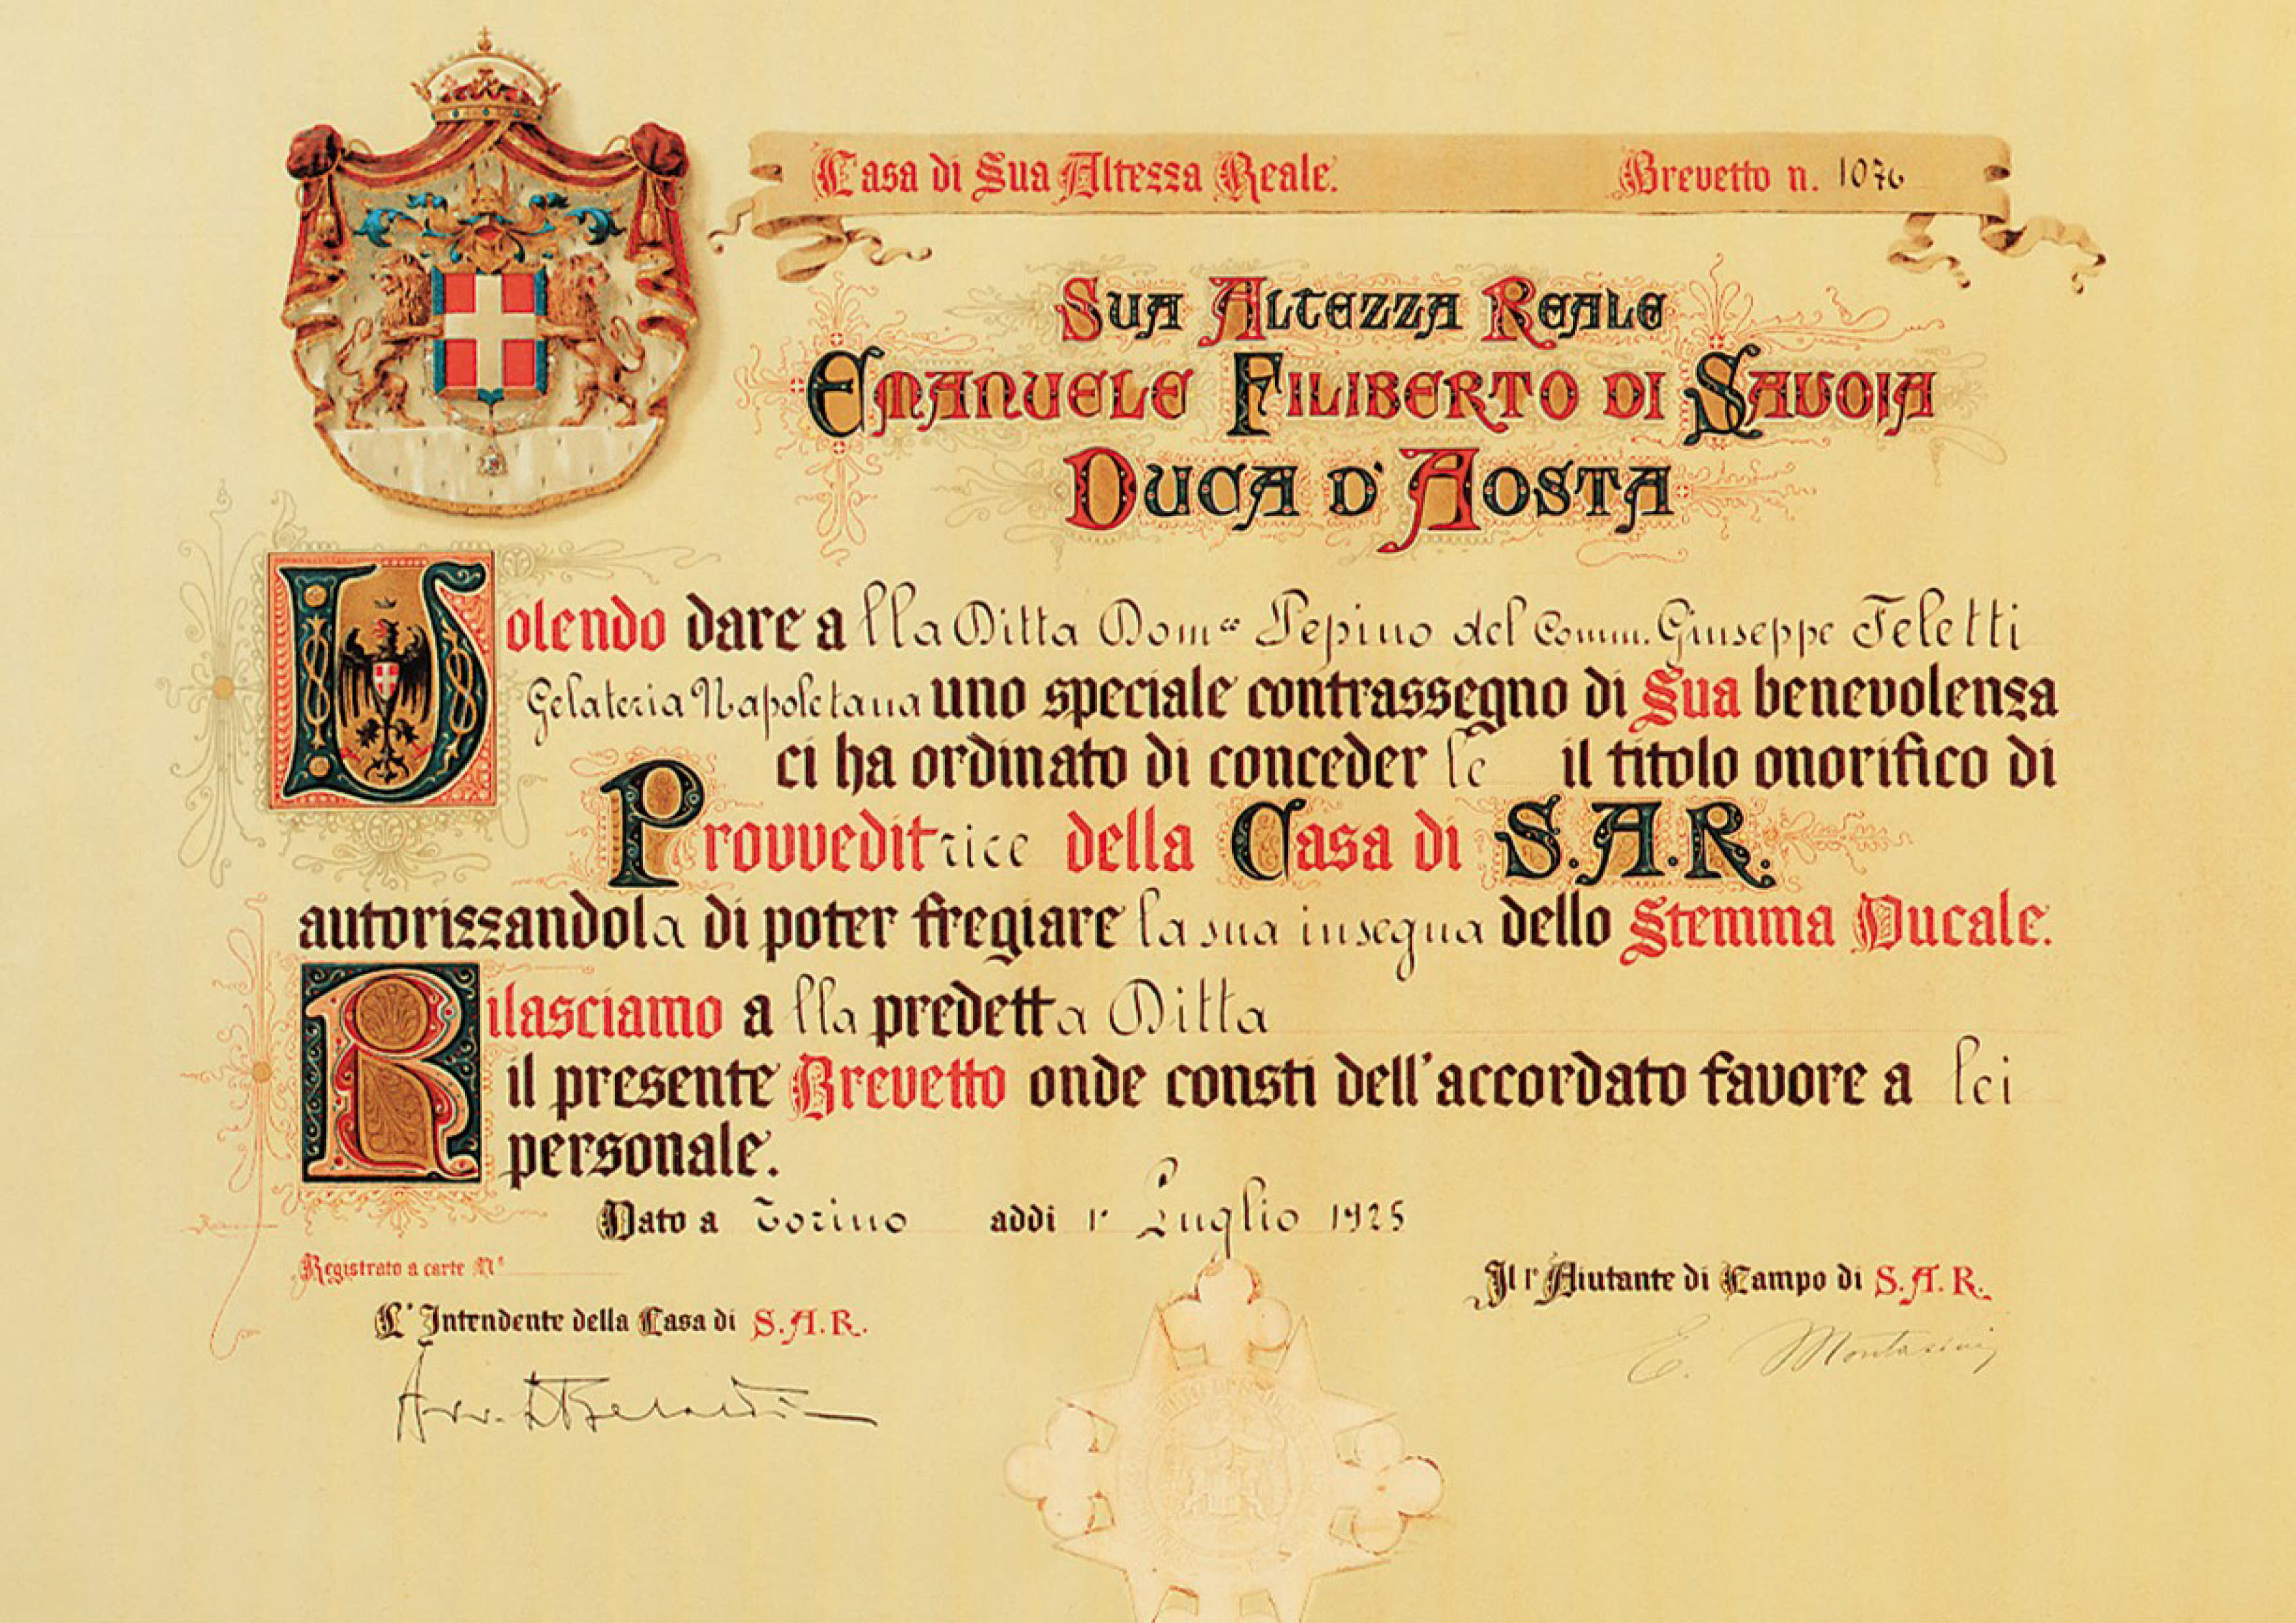 Casa di Sua Altezza Reale. Brevetto n. 1076
SUA ALTEZZA REALE
EMANUELE FILIBERTO DI SAVOIA
DUCA D'AOSTA
Volendo dare alla Ditta Dom.co Pepino del Comm. Giuseppe Feletti
Gelateria Napoletana uno speciale contrassegno di Sua benevolenza
ci ha ordinato di conceder le il titolo onorifico di
Provveditrice della Casa di S.A.R.
autorizzandola di poter fregiare la sua insegna dello Stemma Ducale.
Rilasciamo a lla predetta Ditta
il presente Brevetto onde consti dell'accordato favore a lei
personale.
Dato a Torino addi 1° Luglio 1925
Registrato a carte N°
Il 1° Aiutante di Campo di S.A.R.
L'Intendente della Casa di S.A.R.
E. Montasini
Avv.